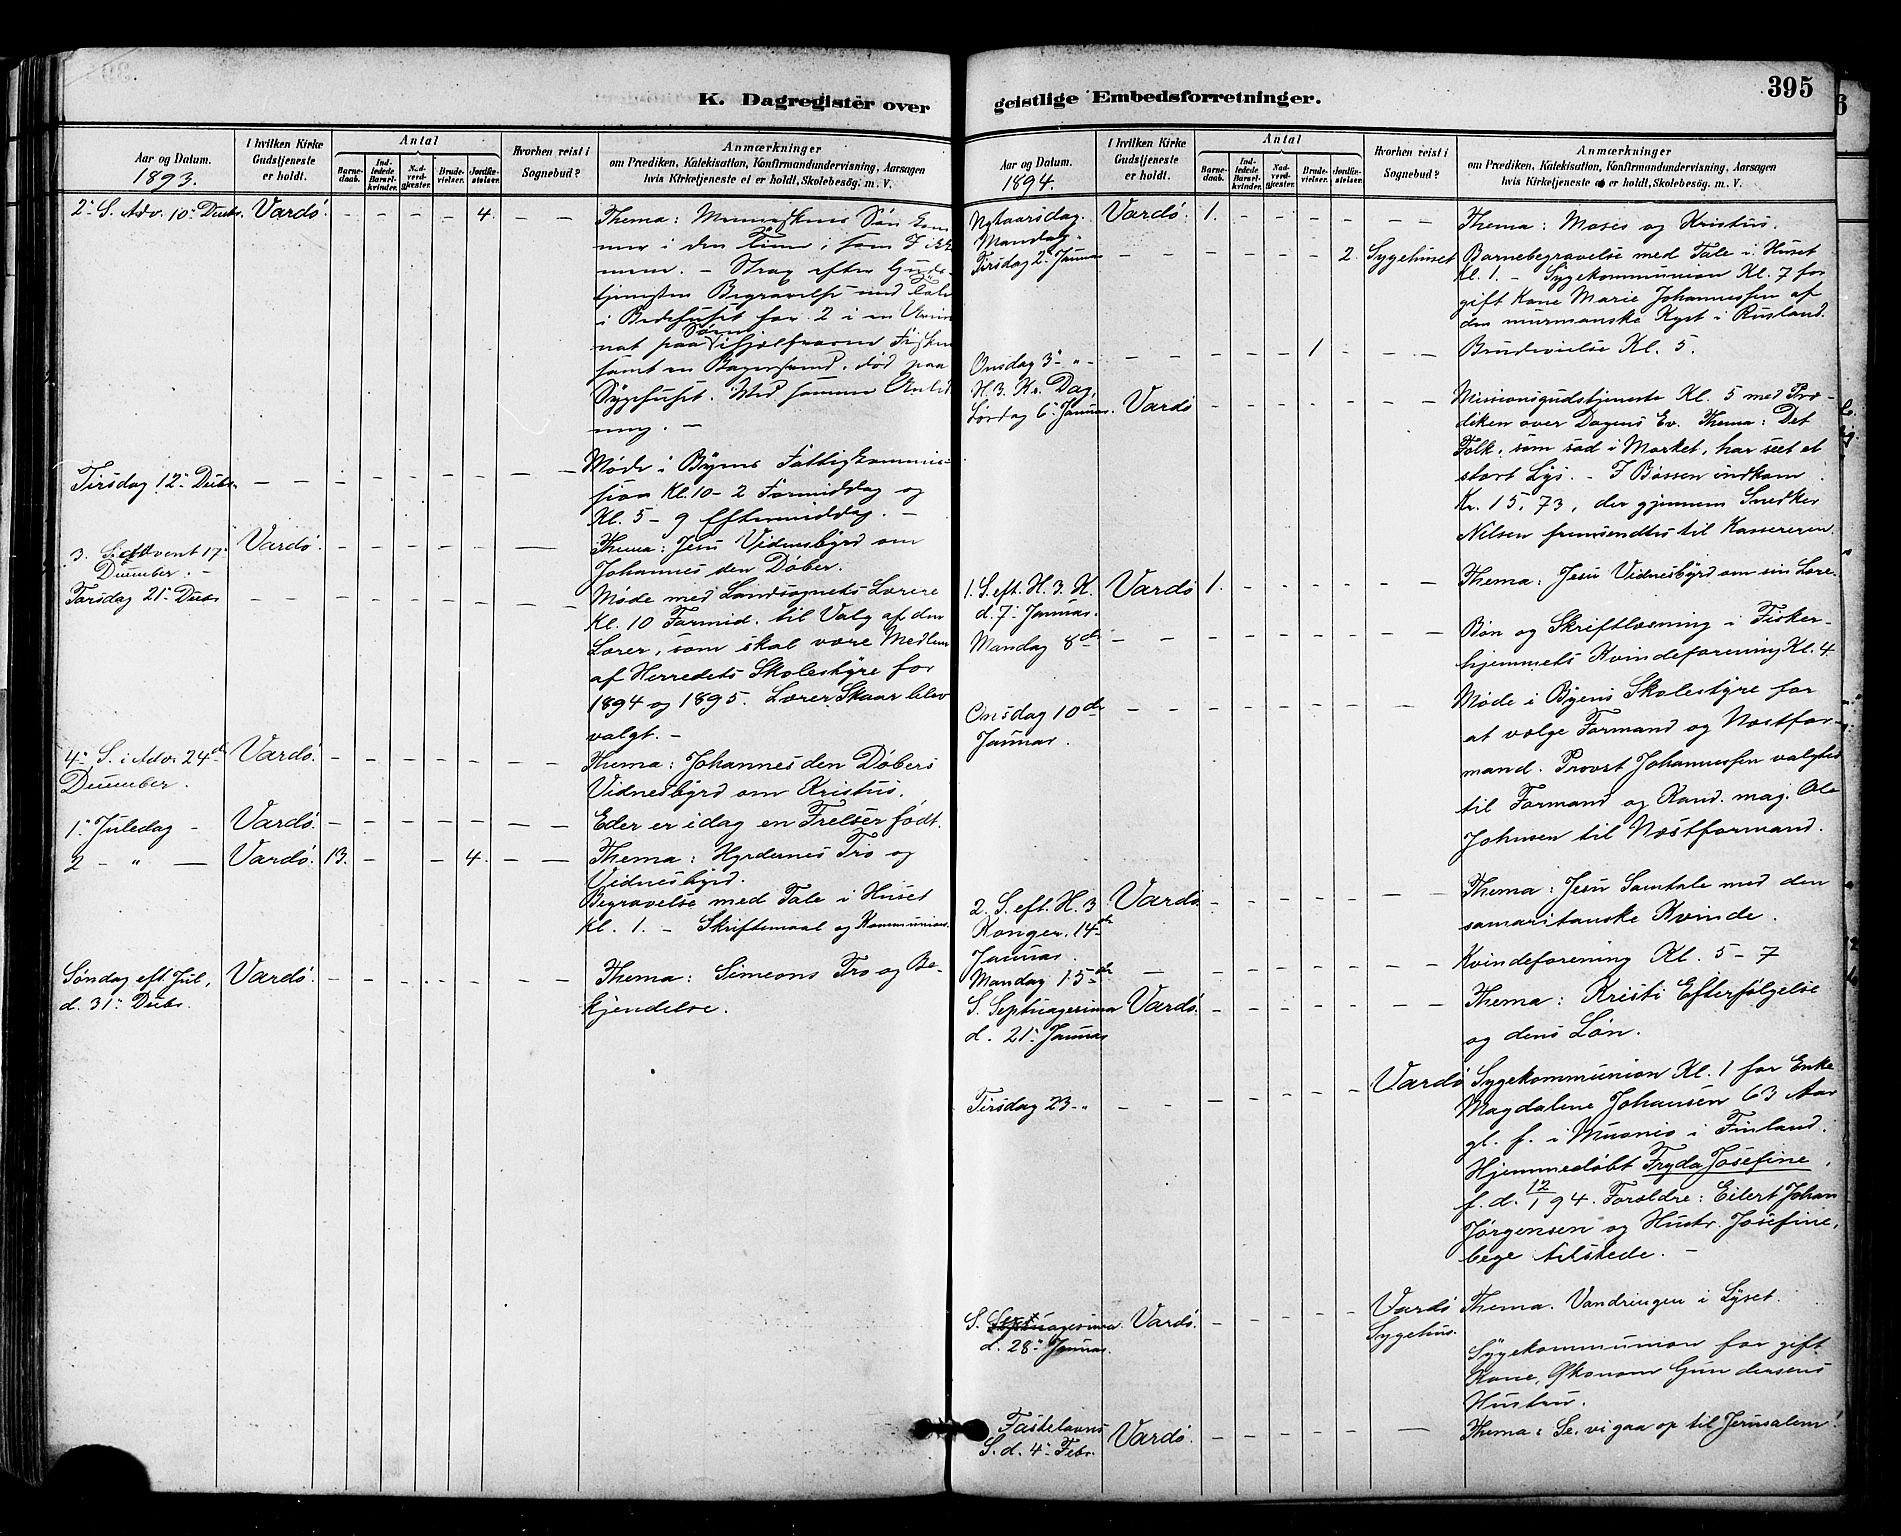 395
K. Dagregister over
Aar og Datum.
1893.
I hvilken Kirke
Gudstjeneste
er holdt.
Antal
Barne-
daab.
Ind-
ledede
Barsel-
kvinder.
Nad-
verd-
gjester.
Brude-
vielser.
Jordfæ-
stelser.
Hvorhen reist i
Sognebud?
Anmærkninger
om Prædiken, Katekisation, Konfirmandundervisning, Aarsagen
hvis Kirketjeneste ei er holdt, Skolebesøg. m. V.
2. S. Adv. 10. Decbr. Vardö. - - - - 4. - -
Thema: Menneskens Søn kom
mer i den Time i som I ikke
mene. - Strax efter Guds-
tjenesten Begravelse med Tale
i Bedehuset for 2
samt en
Sygehuset. Med samme
ning. -
Tirsdag 12. Decbr. - - - - - - - -
Møde i Byens Fattigkommis-
sion Kl. 10 - 2 Formiddag og
Kl. 5 - 9 Eftermiddag. -
3. S. Advent 17. Vardö. - - - - - -
December. -
Thema: Jesu Vidnesbyrd om
Johannes den Døber.
Torsdag 21. Decbr. - - - - - - - -
Møde med Landsognets Lærere
Kl. 10 Formid. til Valg af den
Lærer, som skal være Medlem
af Herredets Skolestyre for
1894 og 1895. Lærer Skaar blev
valgt. -
4. S. i Adv. 24de Vardö. - - - - - - -
December.
Thema: Johannes den Døbers
Vidnesbyrd om Kristus.
1. Juledag - Vardö. - - - - - - -
Eder er idag en Frelser født.
2 - " - Vardö. 13. - - - 4. - -
Thema: Hyrdernes Tro og
Vidnesbyrd.
Begravelse med Tale i Huset
Kl. 1. - Skriftemaal og Kommunion.
Søndag eft. Jul, Vardö. - - - - - - -
d. 31. Decbr.
Thema: Simeons Tro og Be-
kjendelse.
geistlige Embedsforretninger.
Aar og Datum.
1894.
I hvilken Kirke
Gudstjeneste
er holdt.
Antal
Barne-
daab.
Ind-
ledede
Barsel-
kvinder.
Nad-
verd-
gjester.
Brude-
vielser.
Jordfæ-
stelser.
Hvorhen reist i
Sognebud?
Anmærkninger
om Prædiken, Katekisation, Konfirmandundervisning, Aarsagen
hvis Kirketjeneste ei er holdt, Skolebesøg. m. V.
Nytaarsdag. Vardö. 1. - - - - - - -
Mandag.
Thema: Moses og Kristus.
Tirsdag 2. Januar - - - - - - 2. Sygehuset
Barnebegravelse med Tale i Huset
Kl. 1. - Sygekommunion Kl. 7 for
gift Kone Marie Johannessen af
den murmanske Kyst i Rusland.
Onsdag 3. - " - - - - - - 1 - - -
Brudevielse Kl. 5.
H. 3. Kr. Dag,
Lørdag 6. Januar. Vardö - - - - - - -
Missionsgudstjeneste Kl. 5 med Præ-
diken over Dagens Ev. Thema: Det
Folk, som sad i Mørket, har seet et
stort Lys. - I Bøssen indkom
Kr. 15,73, der gjennem Snedker
Nilsen fremsendtes til Kassereren.
1. S. eft. H. 3. K. Vardö 1. - - - - - -
d. 7. Januar.
Thema: Jesu Vidnesbyrd om sin Lære.
Mandag 8de - - - - - - - - -
Bøn og Skriftlæsning i Fisker-
hjemmets Kvindeforening Kl. 4.
Onsdag 10de - - - - - - - - -
Januar.
Møde i Byens Skolestyre for
at vælge Formand og Næstfor-
mand. Provst Johannessen valgtes
til Formand og Kand. mag. Ole
Johnsen til Næstformand.
2. S. eft. H. 3 Vardö. - - - - - - -
Konger. 14de
Januar.
Thema: Jesu Samtale med den
samaritanske Kvinde.
Mandag 15de - - - - - - - -
Kvindeforening Kl. 5 - 7
S. Septuagesima Vardö. - - - - - - -
d. 21. Januar
Thema: Kristi Efterfølgelse
og dens Løn.
Tirsdag 23 - " - - - - - - - Vardö
Sygekommunion Kl. 1 for Enke
Magdalene Johansen 63 Aar
gl. f. i Muonio i Finland.
Hjemmedøbt Fryda Josefine,
f. d. 12/1 94. Forældre: Eilert Johan
Jørgensen og Hustr. Josefine,
bege tilstede. -
S. Sexuagesima. Vardö. - - - - - Vardö
d. 28. Januar. Sygehus.
Thema. Vandringen i Lyset.
Sygekommunion for gift
Kone, Økonom Gundersens
Hustru.
Fastelavns Vardö. - - - - - -
S. d. 4. Febr.
Thema: Se, vi gaa op til Jerusalem!